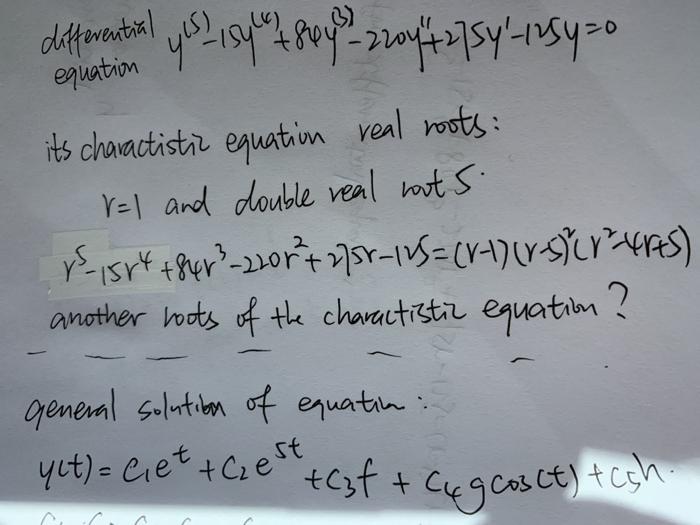 differential
equation y^(5)-15y^(4)+84y^(3)-220y''+275y'-125y=0
its charactistic equation real roots:
r=1 and double real root 5.
r^5-15r^4+84r^3-220r^2+275r-125=(r-1)(r-5)^2(r^2-4r+5)
another roots of the charactistic equation?
general solution of equation:
y(t)=c1e^t+c2e^5t+c3f+c4gcos(t)+c5h.